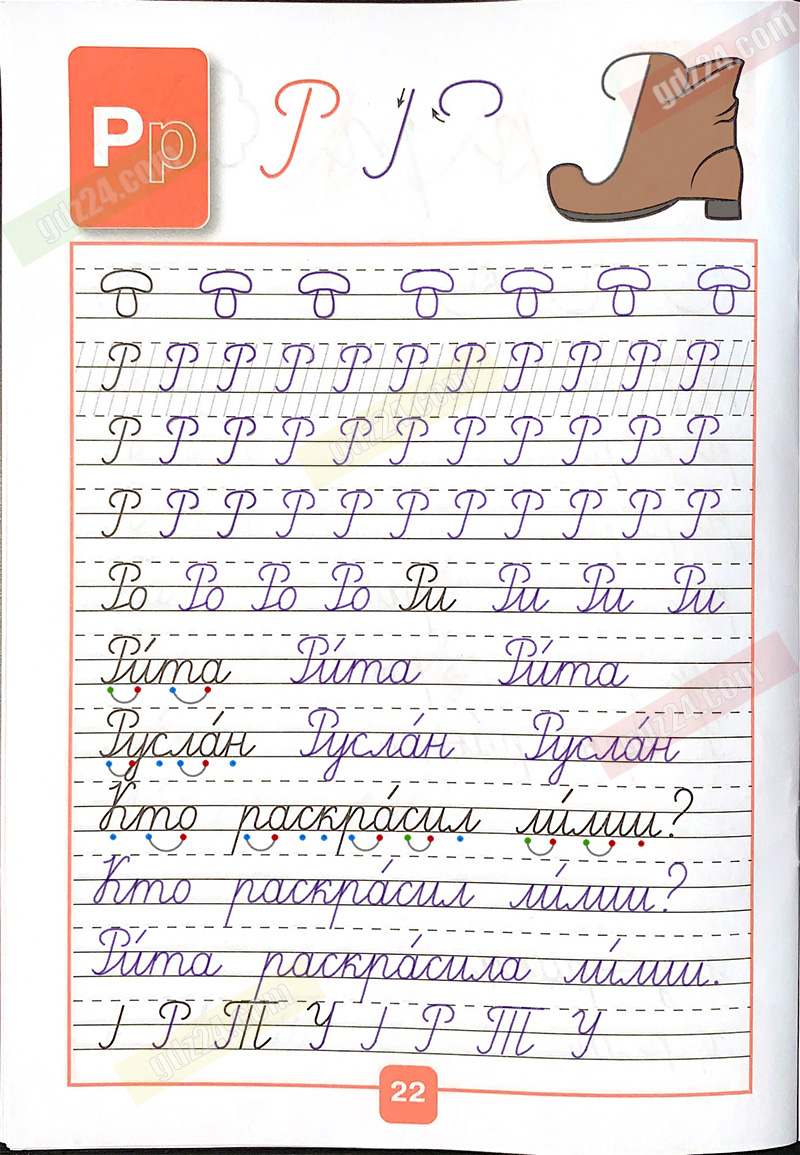 Рр Р
gdz24.com
gdz24.com
Р Р Р Р Р Р Р Р Р Р Р
gdz24.com
Р Р Р Р Р Р Р Р Р Р Р
Р Р Р Р Р Р Р Р Р Р Р
Ро Ро Ро Ро Ри Ри Ри Ри
Ри́та Ри́та Ри́та
gdz24.com
Русла́н Русла́н Русла́н
Кто раскра́сил ли́лии?
Кто раскра́сил ли́лии?
Ри́та раскра́сила ли́лии.
gdz24.com
Р Т У Р Т У
22